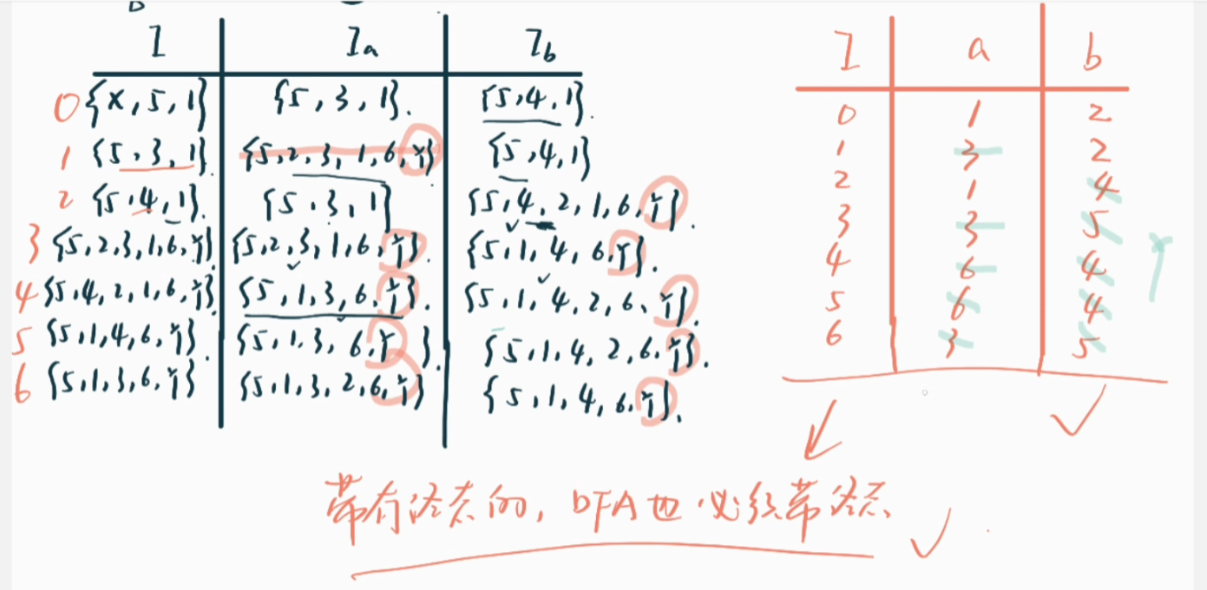 I Ia Ib
0 {X,5,1} {5,3,1}. {5,4,1}.
1 {5,3,1} {5,2,3,1,6,Y} {5,4,1}
2 {5,4,1}. {5,3,1} {5,4,2,1,6,Y}.
3 {5,2,3,1,6,Y}. {5,2,3,1,6,Y}. {5,1,4,6,Y}.
4 {5,4,2,1,6,Y}. {5,1,3,6,Y}. {5,1,4,2,6,Y}.
5 {5,1,4,6,Y}. {5,1,3,6,Y}. {5,1,4,2,6,Y}.
6 {5,1,3,6,Y} {5,1,3,2,6,Y} {5,1,4,6,Y}.
I a b
0 1 2
1 3 2
2 1 4
3 3 5
4 6 4
5 6 4
6 3 5
Y
带有终态的，DFA也必须带终态